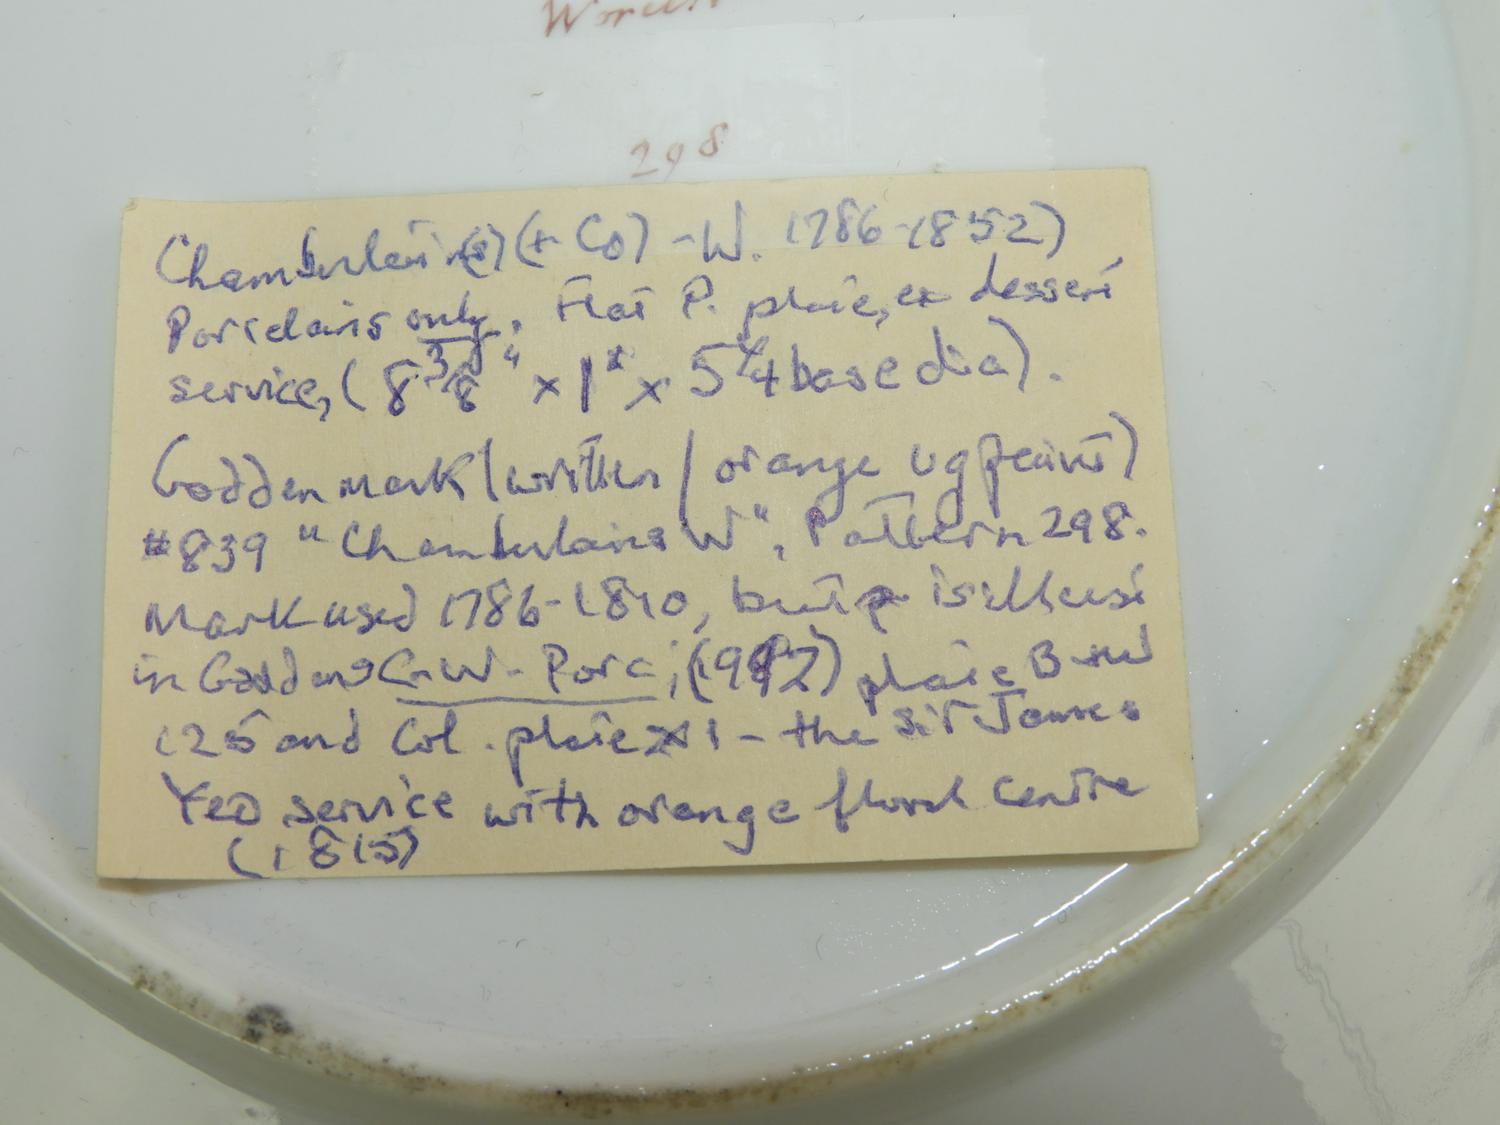 298
Chamberlain(s) (+ Co) - W. 1786-1852)
Porcelains only. Flat P. plate, ex dessert
service, (8 3/8" x 1" x 5 1/4 base dia).
Godden mark (written / orange ug paint)
#839 "Chamberlains W", Pattern 298.
Mark used 1786-1810, but is illust
in Goddens C-W-Porc; plate B and
125 and Col. plate X1 - the Sir James
Yeo service with orange floral centre
(1815)